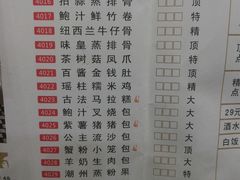 4016 招 蒜 蒸 排 骨 □□□ 顶
4017 鲍 汁 鲜 竹 卷 □□□ 特
4018 纽西兰牛仔骨 □□□ 顶
4019 味 皇 蒸 排 骨 □□□ 顶
4020 茶 树 菇 凤 爪 □□□ 顶
4021 百 酱 金 钱 肚 □□□ 特
4022 瑶 柱 糯 米 鸡 □□□ 精
4023 古 法 马 拉 糕 □□□ 大
4024 鲍 汁 叉 烧 包 □□□ 大
4025 紫 薯 猪 猪 包 □□□ 大
4026 公 主 流 沙 包 □□□ 大
4027 蟹 粉 小 笼 包 □□□ 顶
4028 羊 奶 生 肉 包 □□□ 大
4029 潮 州 蒸 粉 果 □□□ 特
点
29元
酒水
白饭